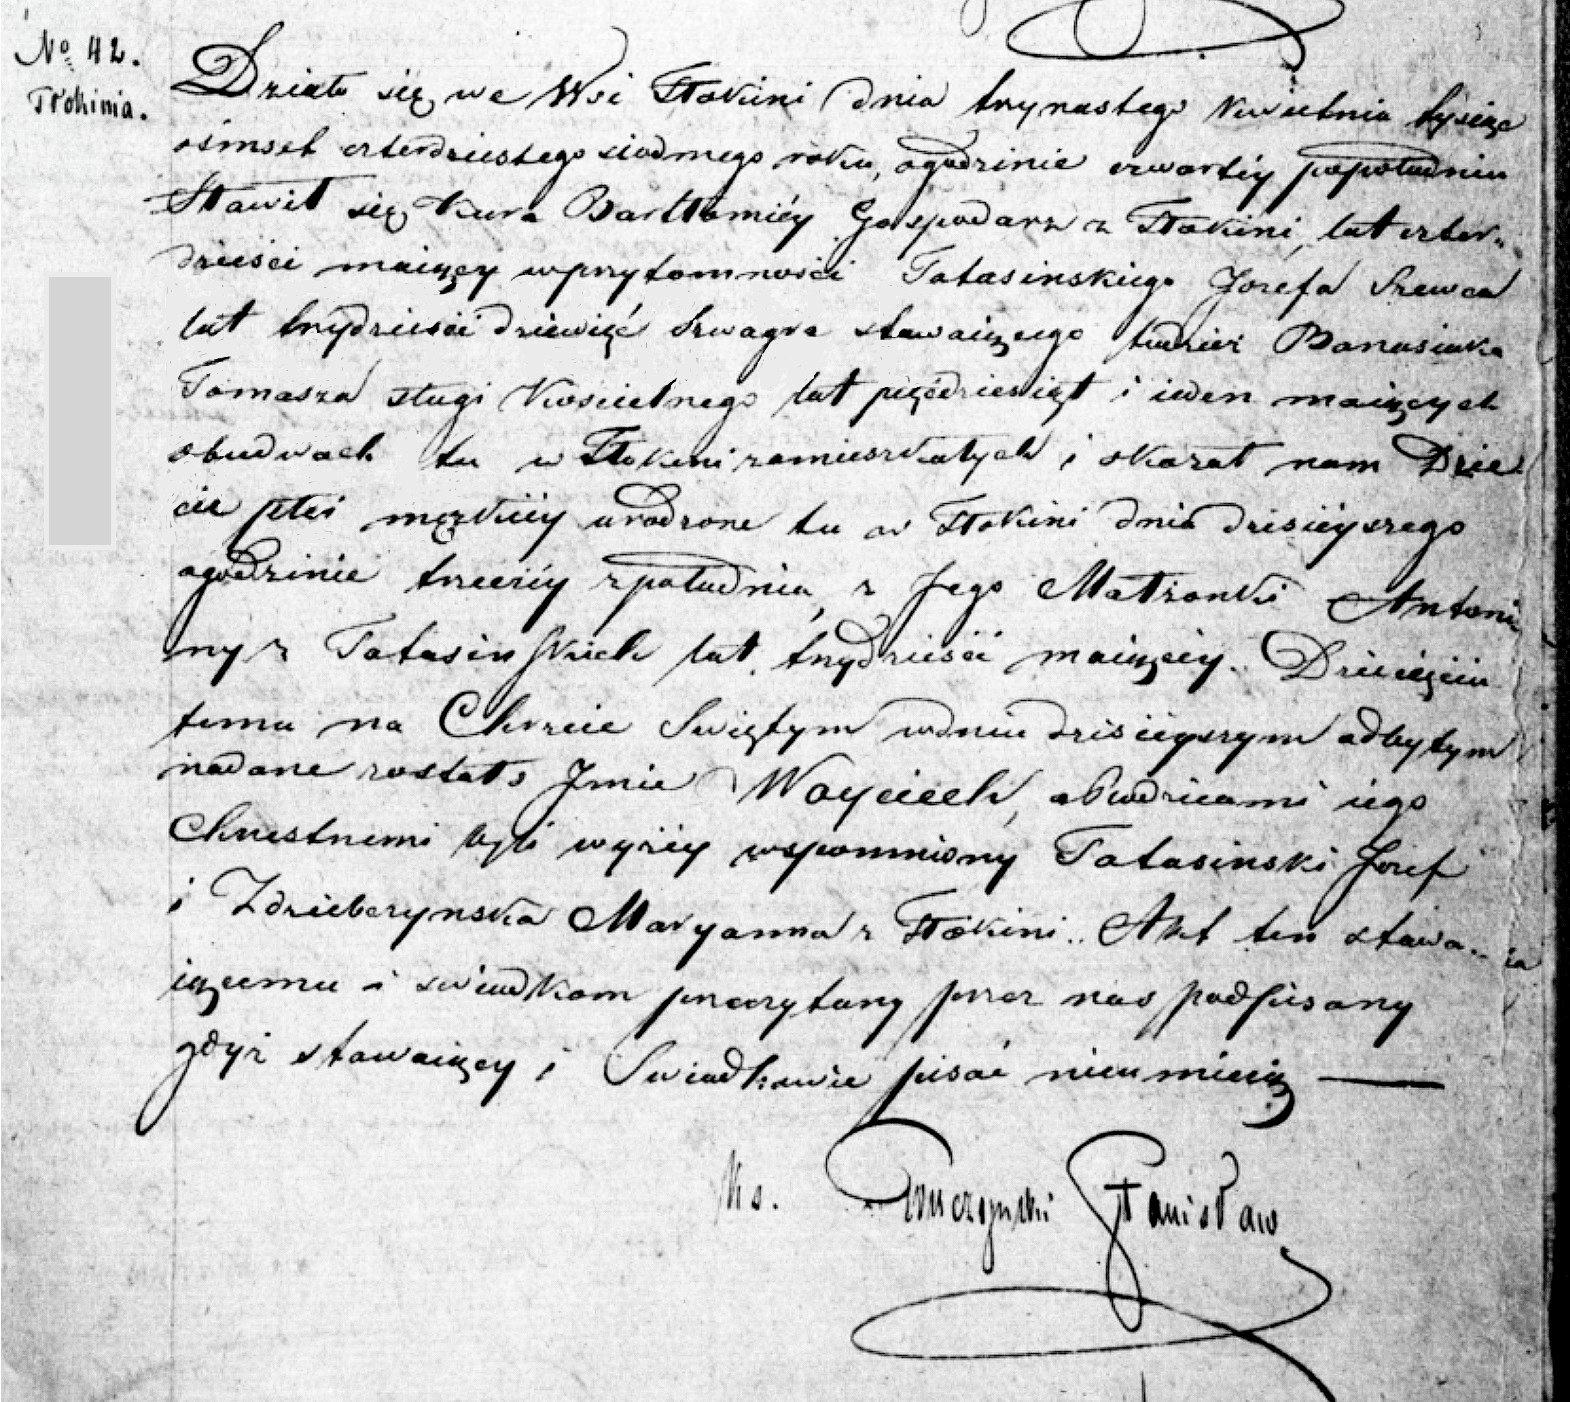 No 42.
Tłokinia.
Działo się we Wsi Tłokini dnia trzynastego Kwietnia tysiąc
ośmset czterdziestego siodmego roku, ogodzinie czwartéy popołudniu
Stawił się Kura Bartłomiéy Gospodarz z Tłokini, lat czter-
dzieści maiący wprzytomności Tatasinskiego Jozefa Szewca
lat trzydzieści dziewięć Szwagra stawaiącego tudzież Banasiaka
Tomasza sługi Kościelnego lat pięćdziesiąt i ieden maiących
obudwoch tu w Tłokini zamieszkałych i okazał nam Dzie
cie płci męzkiéy urodzone tu w Tłokini dnia dzisiéyszego
ogodzinie trzeciéy zpołudnia, z Jego Małżonki Antoni
ny z Tatasinskich lat trzydzieści maiącéy. Dziecięciu
temu na Chrzcie Swiętym wdniu dzisiéyszym odbytym
nadane zostało Jmie Woyciech, aRodzicami iego
Chrzestnemi byli wyżéy wspomniony Tatasinski Jozef
i Zdzieberzynska Maryanna z Tłokini. Akt ten stawa-
iącemu i swiadkom przeczytany przez nas podpisany
gdyż stawaiący i Swiadkowie pisać nieumieią
Ks. Stanisław